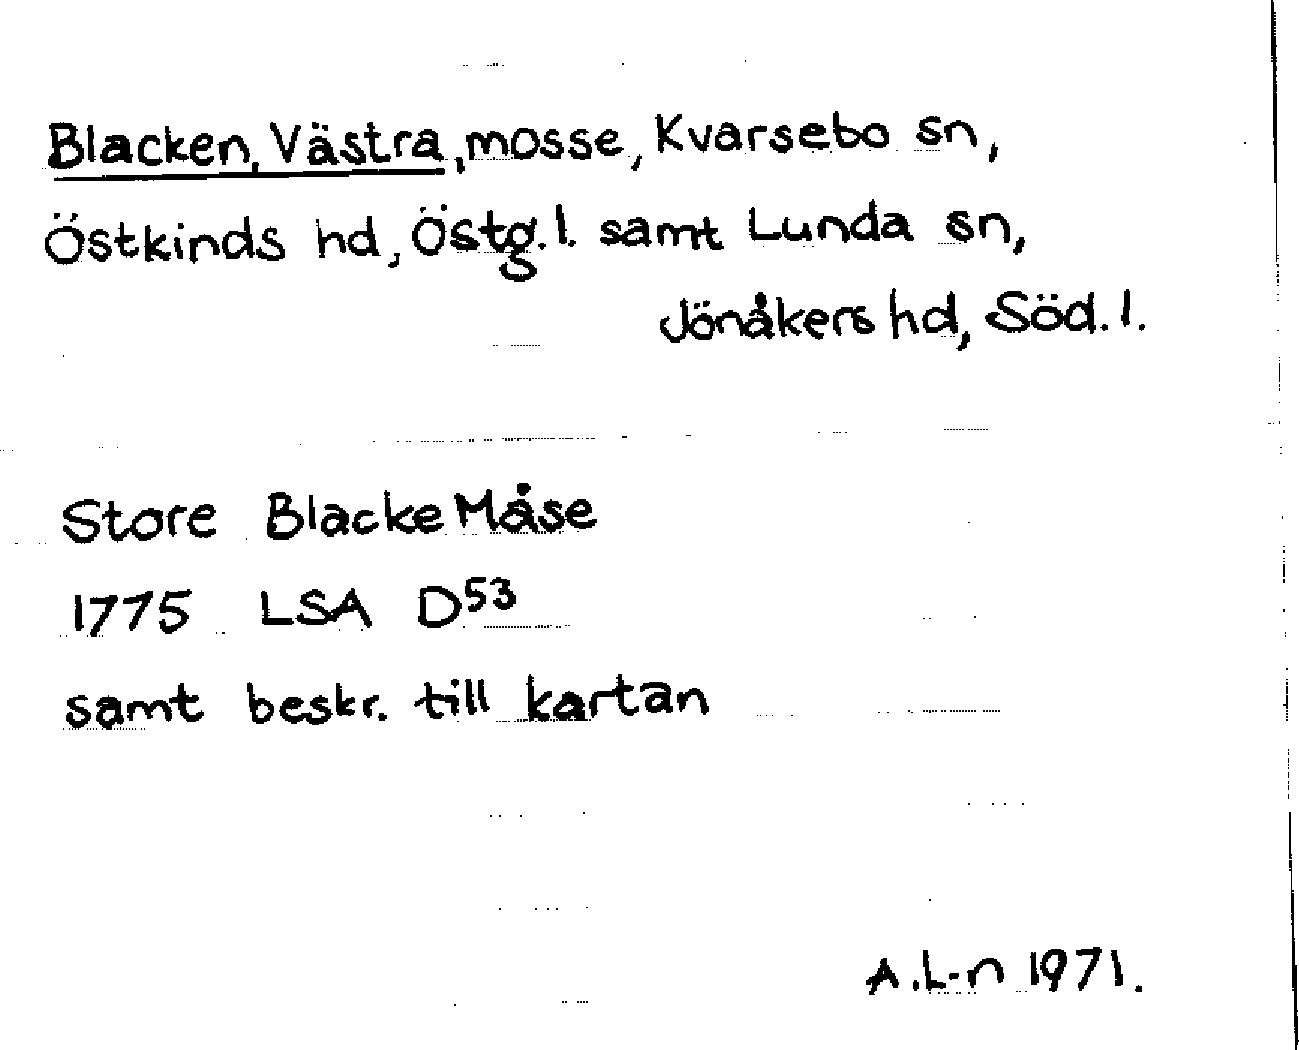 Blacken, Västra, mosse, Kvarsebo sn,
Östkinds hd, Östg. l. samt Lunda sn,
Jönåkers hd, Söd. l.
Store Blacke Måse
1775 LSA D53
samt beskr. till kartan
A. L-n 1971.